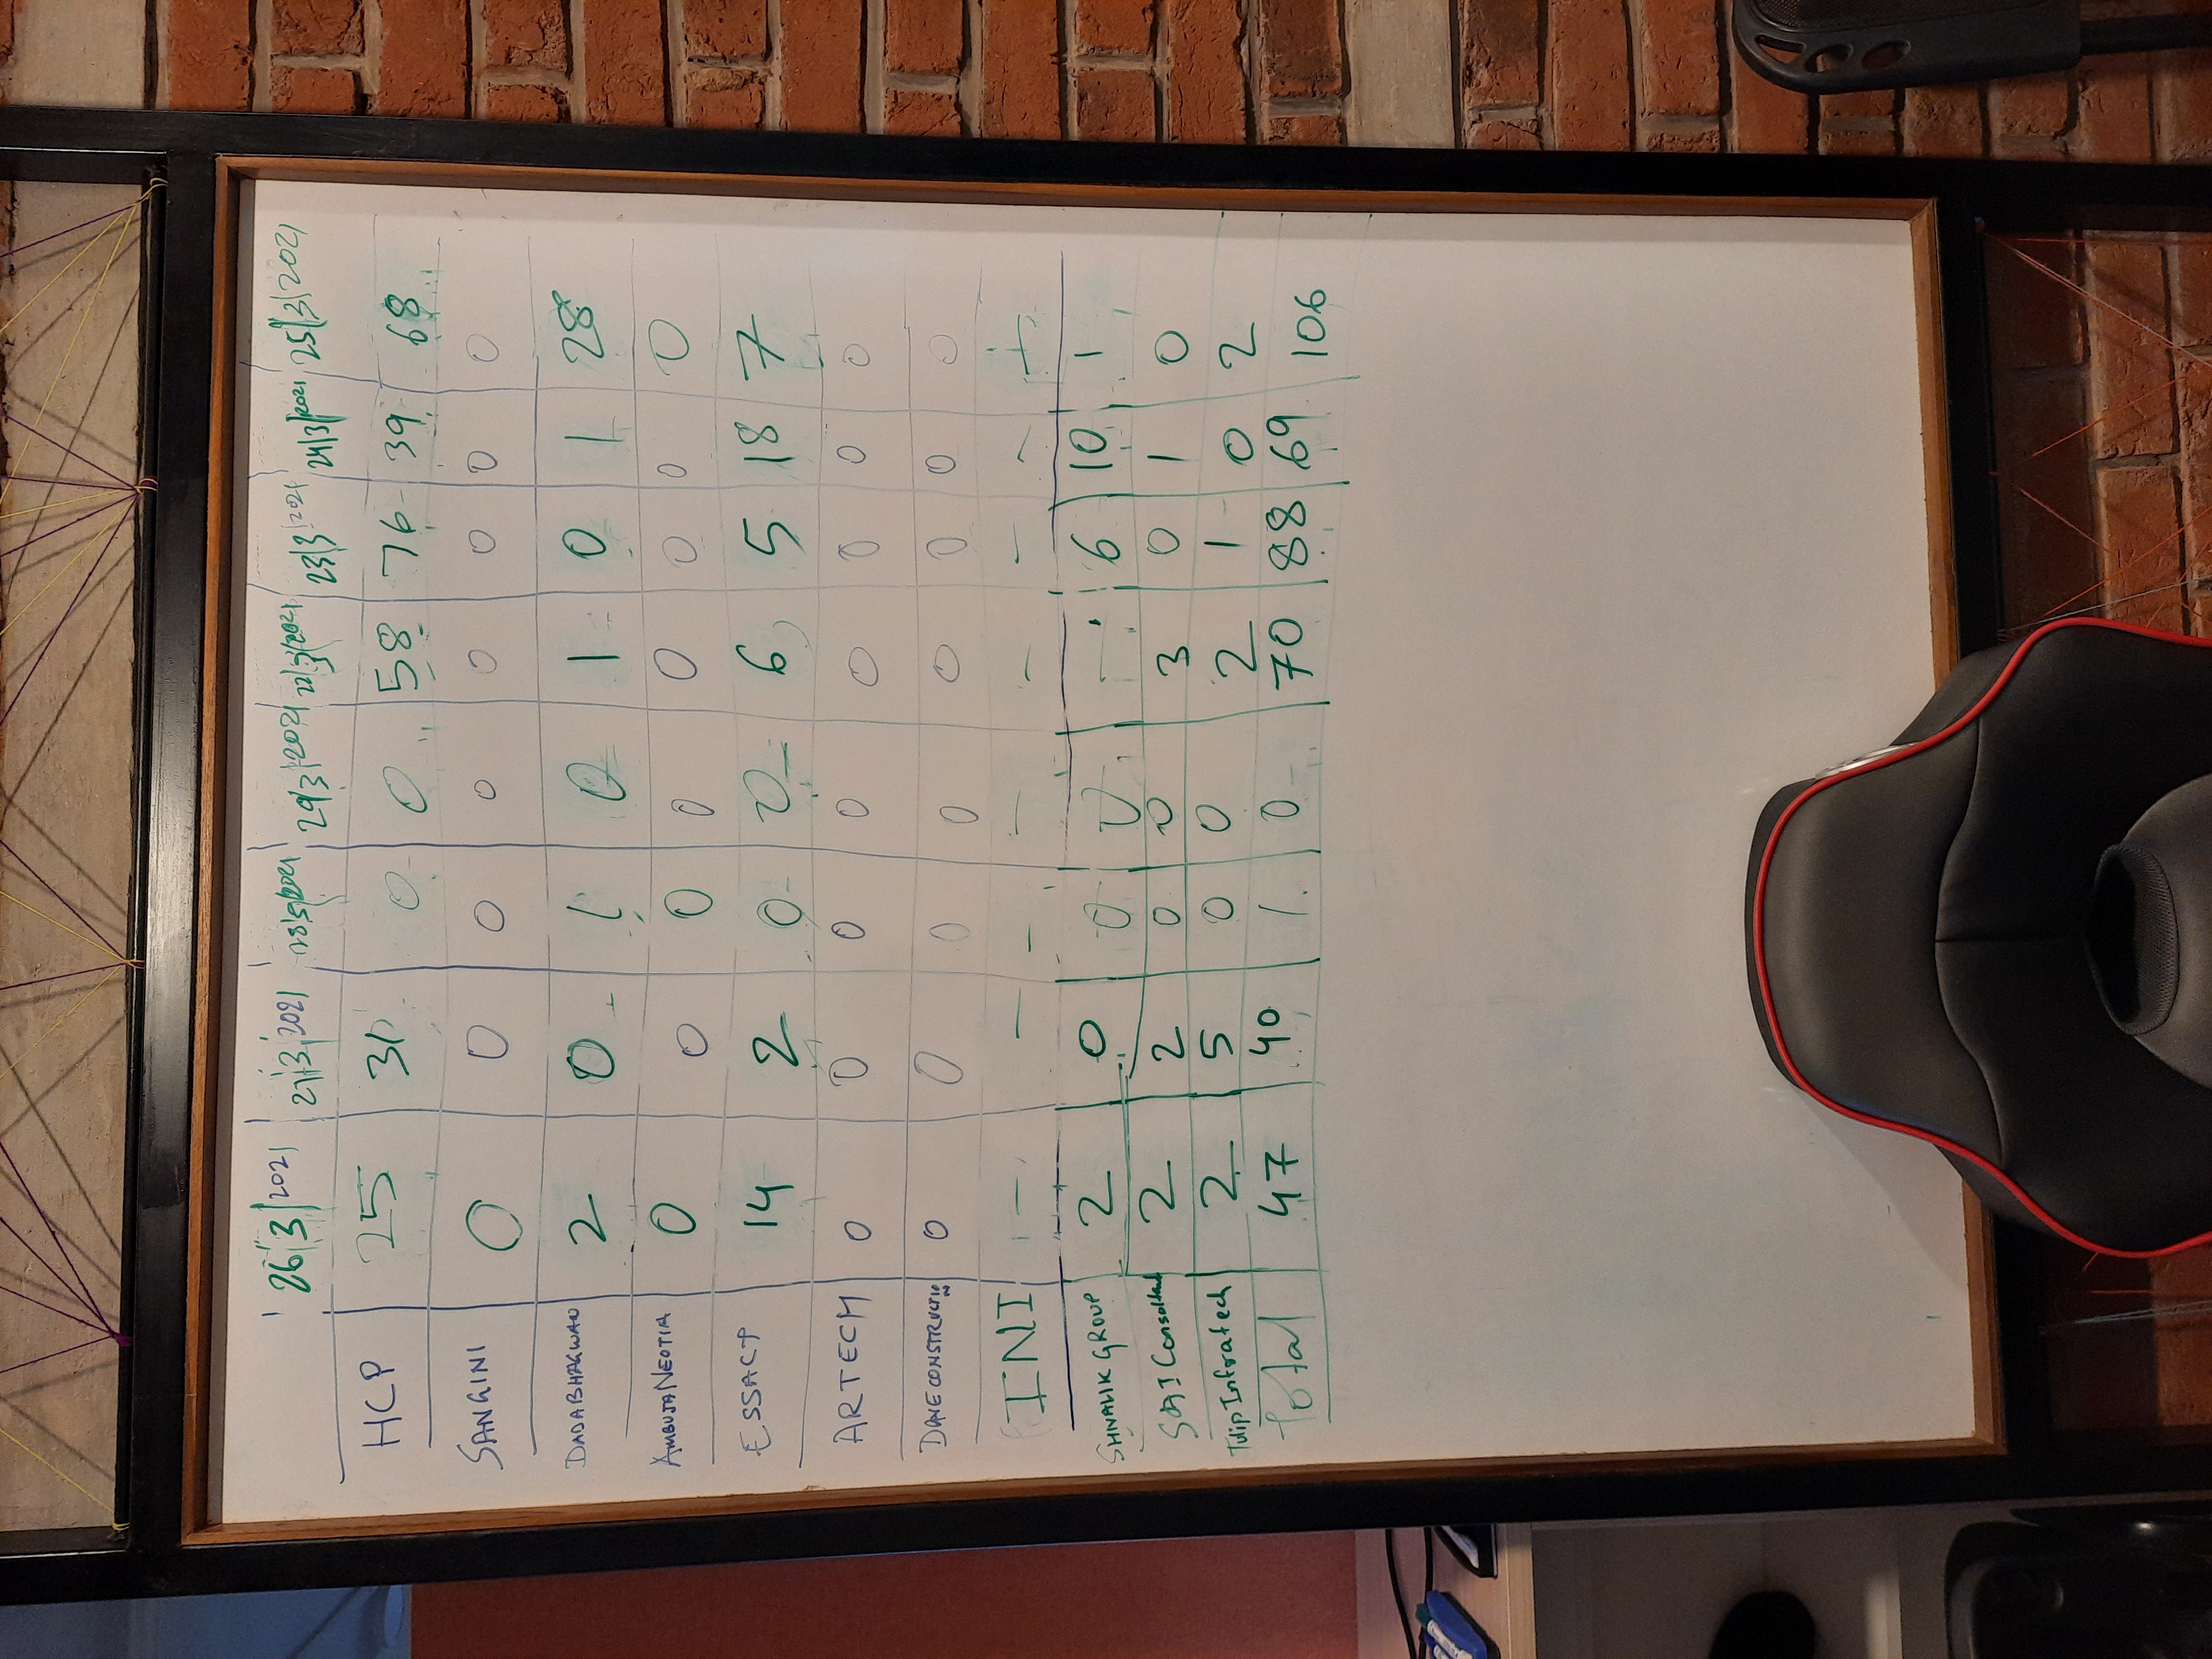 26/3/2021 27/3/2021 28/3/2021 29/3/2021 22/3/2021 23/3/2021 24/3/2021 25/3/2021
HCP 25 31 0 0 58 76 39 68
SANGINI 0 0 0 0 0 0 0 0
DADABHAGWAN 2 0 1 0 1 0 1 28
AMBUJA NEOTIA 0 0 0 0 0 0 0 0
ESSACP 14 2 0 0 6 5 18 7
ARTECH 0 0 0 0 0 0 0 0
DAVE CONSTRUCTION 0 0 0 0 0 0 0 0
INI — — — — — — — —
SHIVALIK GROUP 2 0 0 0 — 6 10 1
SAI Consultant 2 2 0 0 3 0 1 0
Tulip Infratech 2 5 0 0 2 1 0 2
Total 47 40 1 0 70 88 69 106